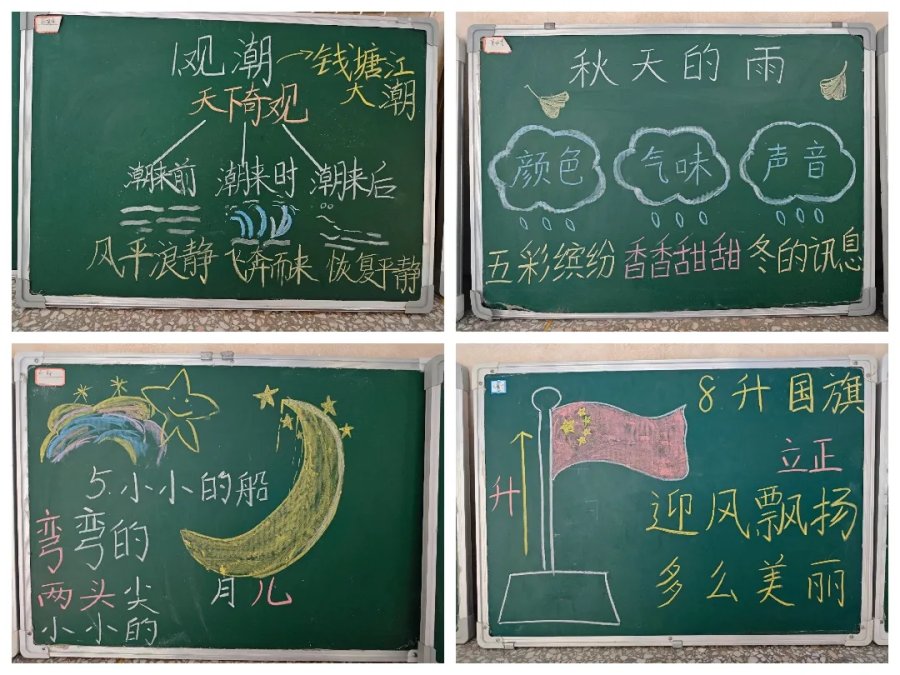 1观潮→钱塘江
大潮
天下奇观
潮来前 潮来时 潮来后
风平浪静 飞奔而来 恢复平静
秋天的雨
颜色 气味 声音
五彩缤纷 香香甜甜 冬的讯息
5.小小的船
弯弯的
两头尖
小小的
月儿
8升国旗
升
立正
迎风飘扬
多么美丽